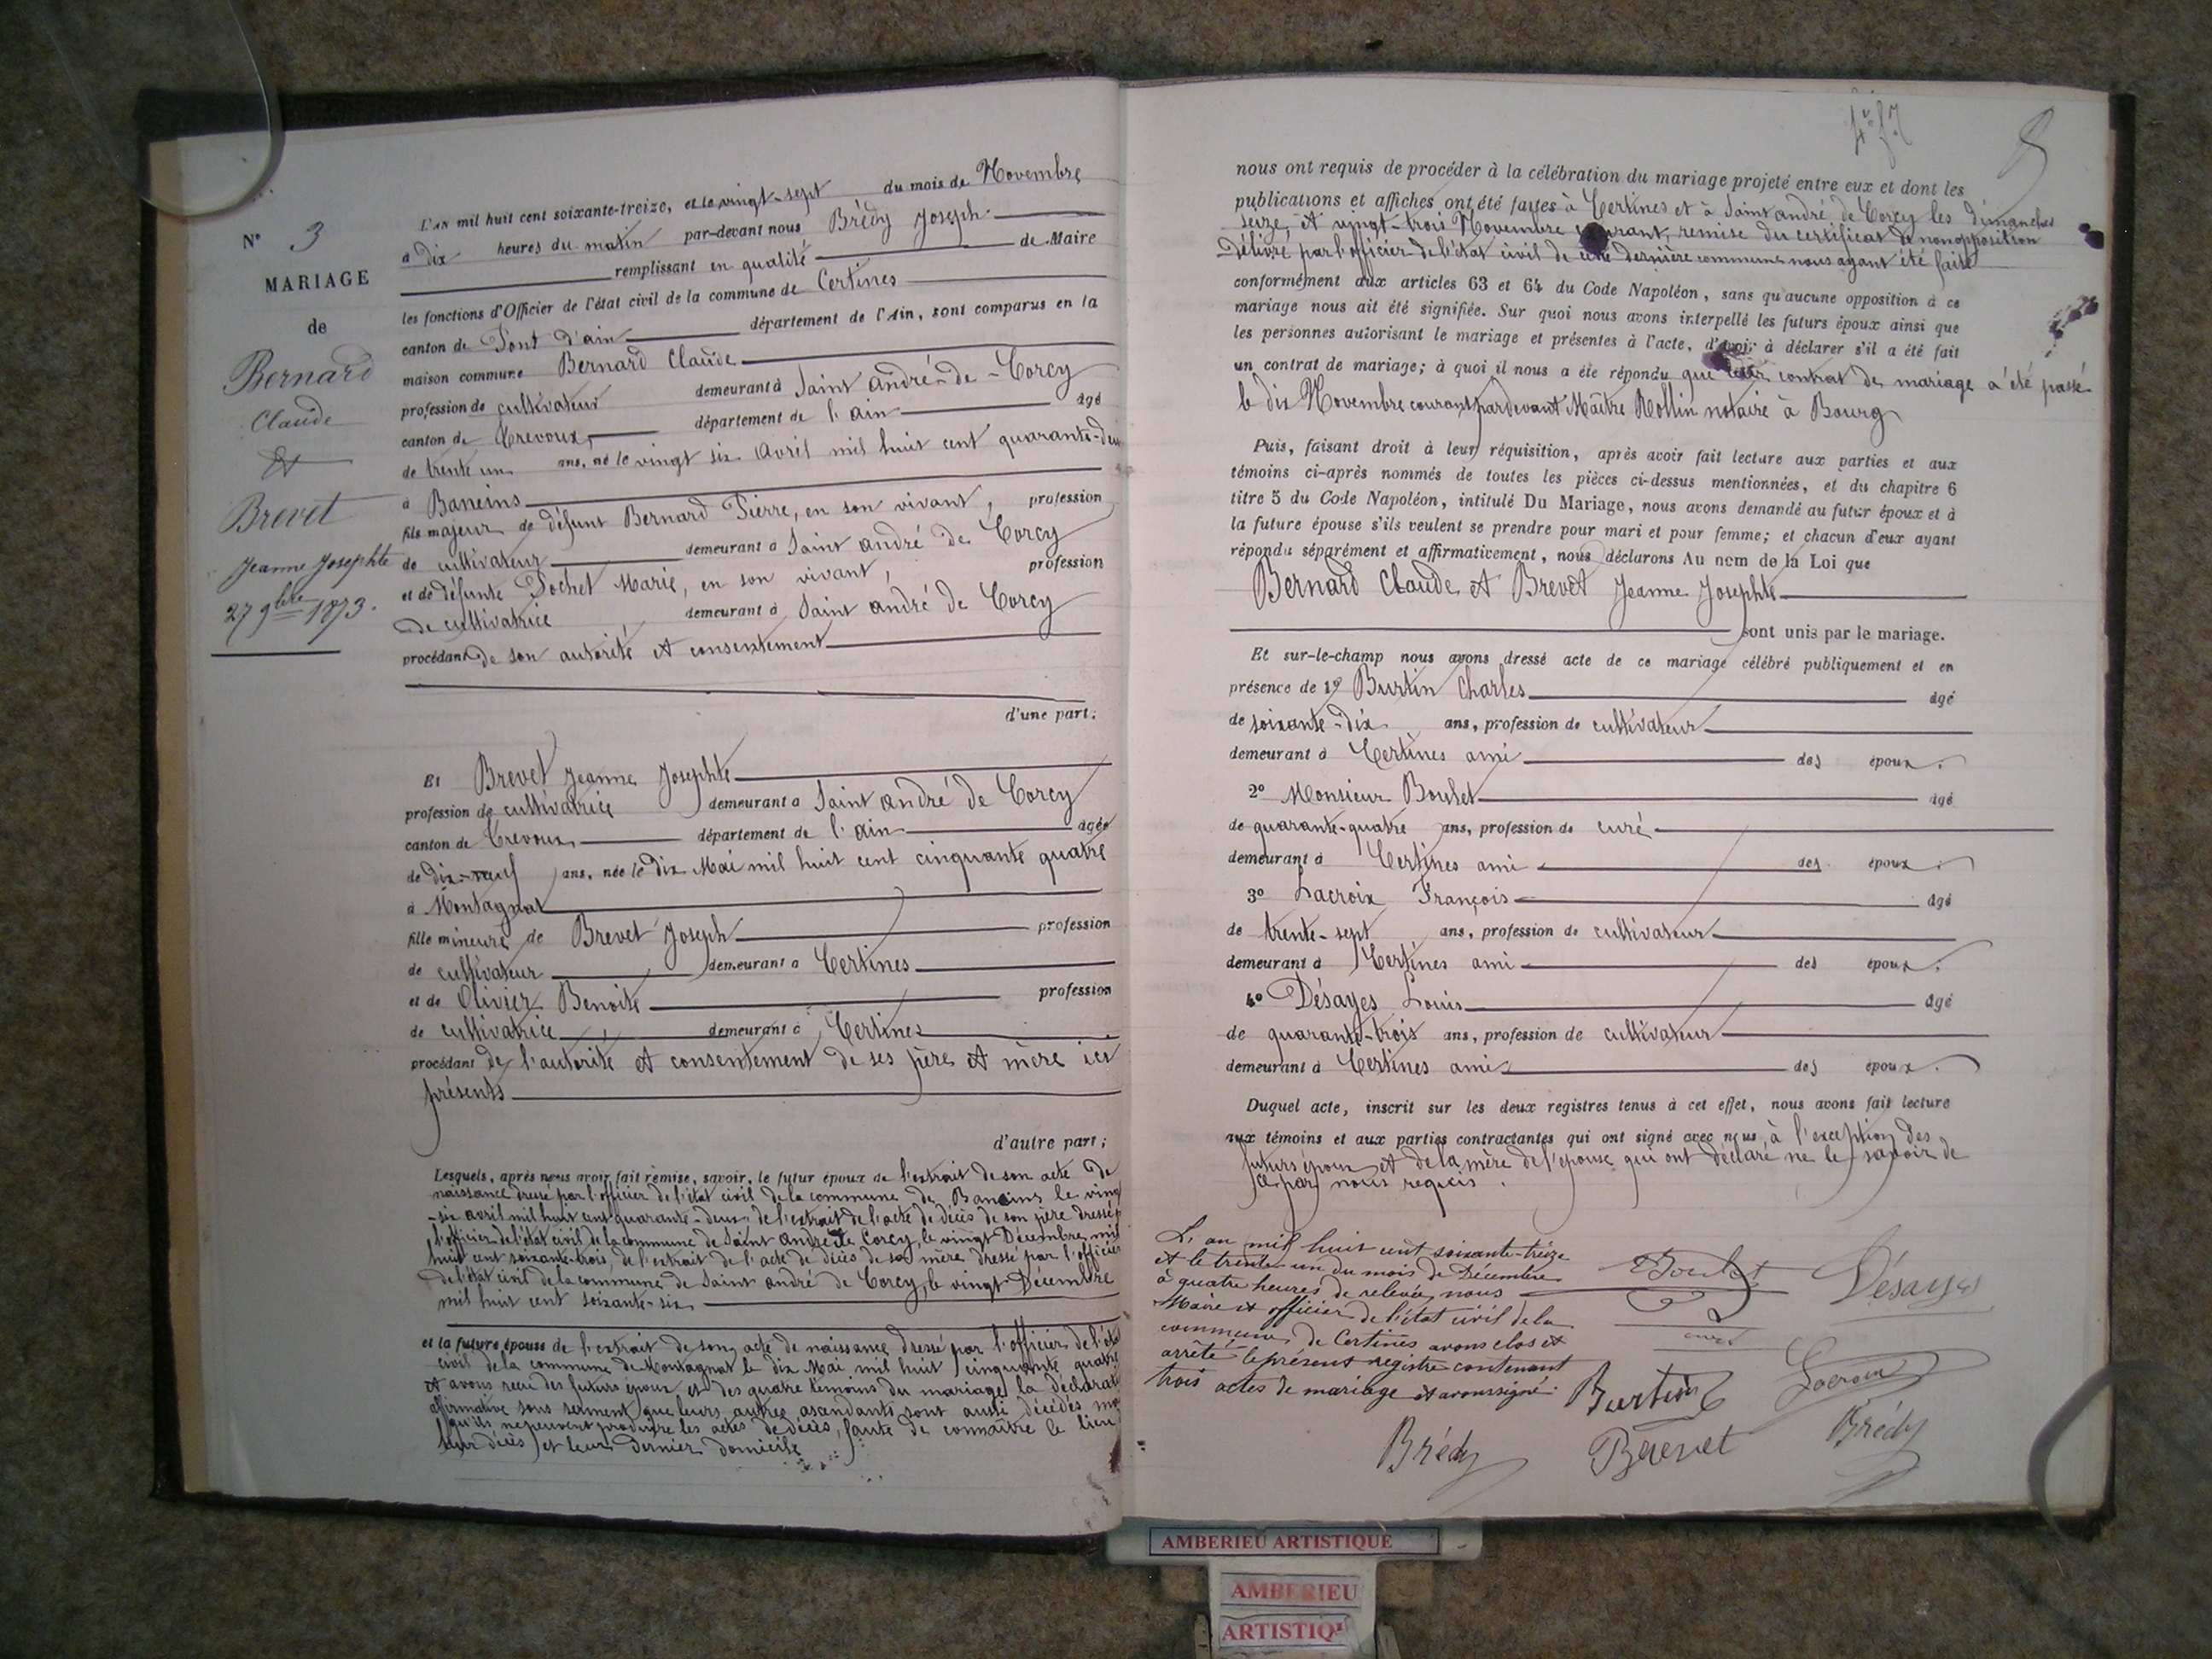 N° 3
MARIAGE
de
Bernard
Claude
&
Brevet
Jeanne Josephte
27 9bre 1873.
L'an mil huit cent soixante-treize, et le vingt-sept du mois de Novembre
à dix heures du matin par-devant nous Brédy Joseph
remplissant en qualité de Maire
les fonctions d'Officier de l'état civil de la commune de Certines
canton de Pont d'ain département de l'Ain, sont comparus en la
maison commune Bernard Claude
profession de cultivateur demeurant à Saint andré-de-Corcy
canton de Trevoux département de l'ain âgé
de trente un ans, né le vingt six Avril mil huit cent quarante-deux
à Baneins
fils majeur de défunt Bernard Pierre, en son vivant, profession
de cultivateur demeurant à Saint andré de Corcy
et de défunte Pochet Marie, en son vivant, profession
de cultivatrice demeurant à Saint andré de Corcy
procédant de son autorité et consentement
d'une part;
Et Brevet Jeanne Josephte
profession de cultivatrice demeurant à Saint andré de Corcy
canton de Trevoux département de l'ain agée
de dix-neuf ans, née le dix Mai mil huit cent cinquante quatre
à Montagnat
fille mineure de Brevet Joseph profession
de cultivateur demeurant à Certines
et de Olivier Benoite profession
de cultivatrice demeurant à Certines
procédant de l'autorité et consentement de ses père et mère ici
présents
d'autre part;
Lesquels, après nous avoir fait remise, savoir, le futur époux de l'extrait de son acte de
naissance dressé par l'officier de l'état civil de la commune de Baneins le vingt
-six avril mil huit cent quarante-deux, de l'extrait de l'acte de décès de son père dressé p
l'officier de l'état civil de la commune de Saint André de Corcy, le vingt Décembre mil
huit cent soixante-trois, de l'extrait de l'acte de décès de sa mère dressé par l'officier
de l'état civil de la commune de Saint andré de Corcy, le vingt Décembre
mil huit cent soixante-six
et la future épouse de l'extrait de son acte de naissance dressé par l'officier de l'état
civil de la commune de Montagnat le dix Mai mil huit cinquante quatre
et avons reçu des futurs époux et des quatre témoins du mariage la déclarat
affirmative sous serment que leurs autres ascendants sont aussi décédés ma
qu'ils ne peuvent produire les actes de décès, faute de connaître le lieu
leur décès et leur dernier domicile
nous ont requis de procéder à la célébration du mariage projeté entre eux et dont les
publications et affiches ont été faites à Certines et à Saint andré de Corcy les dimanches
seize, et vingt-trois Novembre courant, remise du certificat de non opposition
délivré par l'officier de l'état civil de cette dernière commune nous ayant été faite
conformément aux articles 63 et 64 du Code Napoléon, sans qu'aucune opposition à ce
mariage nous ait été signifiée. Sur quoi nous avons interpellé les futurs époux ainsi que
les personnes autorisant le mariage et présentes à l'acte, d'avoir à déclarer s'il a été fait
un contrat de mariage; à quoi il nous a été répondu que leur contrat de mariage a été passé
le dix Novembre courant pardevant Maître Rollin notaire à Bourg
Puis, faisant droit à leur réquisition, après avoir fait lecture aux parties et aux
témoins ci-après nommés de toutes les pièces ci-dessus mentionnées, et du chapitre 6
titre 5 du Code Napoléon, intitulé Du Mariage, nous avons demandé au futur époux et à
la future épouse s'ils veulent se prendre pour mari et pour femme; et chacun d'eux ayant
répondu séparément et affirmativement, nous déclarons Au nom de la Loi que
Bernard Claude et Brevet Jeanne Josephte
sont unis par le mariage.
Et sur-le-champ nous avons dressé acte de ce mariage célébré publiquement et en
présence de 1° Burtin Charles âgé
de soixante-dix ans, profession de cultivateur
demeurant à Certines ami des époux.
2° Monsieur Boulet âgé
de quarante-quatre ans, profession de curé
demeurant à Certines ami des époux.
3° Lacroix François âgé
de trente-sept ans, profession de cultivateur
demeurant à Certines ami des époux.
4° Désayes Louis âgé
de quarante-trois ans, profession de cultivateur
demeurant à Certines ami des époux.
Duquel acte, inscrit sur les deux registres tenus à cet effet, nous avons fait lecture
aux témoins et aux parties contractantes qui ont signé avec nous, à l'exception des
futurs époux et de la mère de l'épouse qui ont déclaré ne le savoir de
ce par nous requis.
L'an mil huit cent soixante-treize
et le trente-un du mois de Décembre
à quatre heures de relevée, nous
Maire et officier de l'état civil de la
commune de Certines avons clos et
arrêté le présent registre contenant
trois actes de mariage et avons signé.
Boulet
curé
Désayes
Burtin
Lacroix
Brédy
Brevet
Brédy
AMBERIEU ARTISTIQUE
AMBERIEU
ARTISTIQ